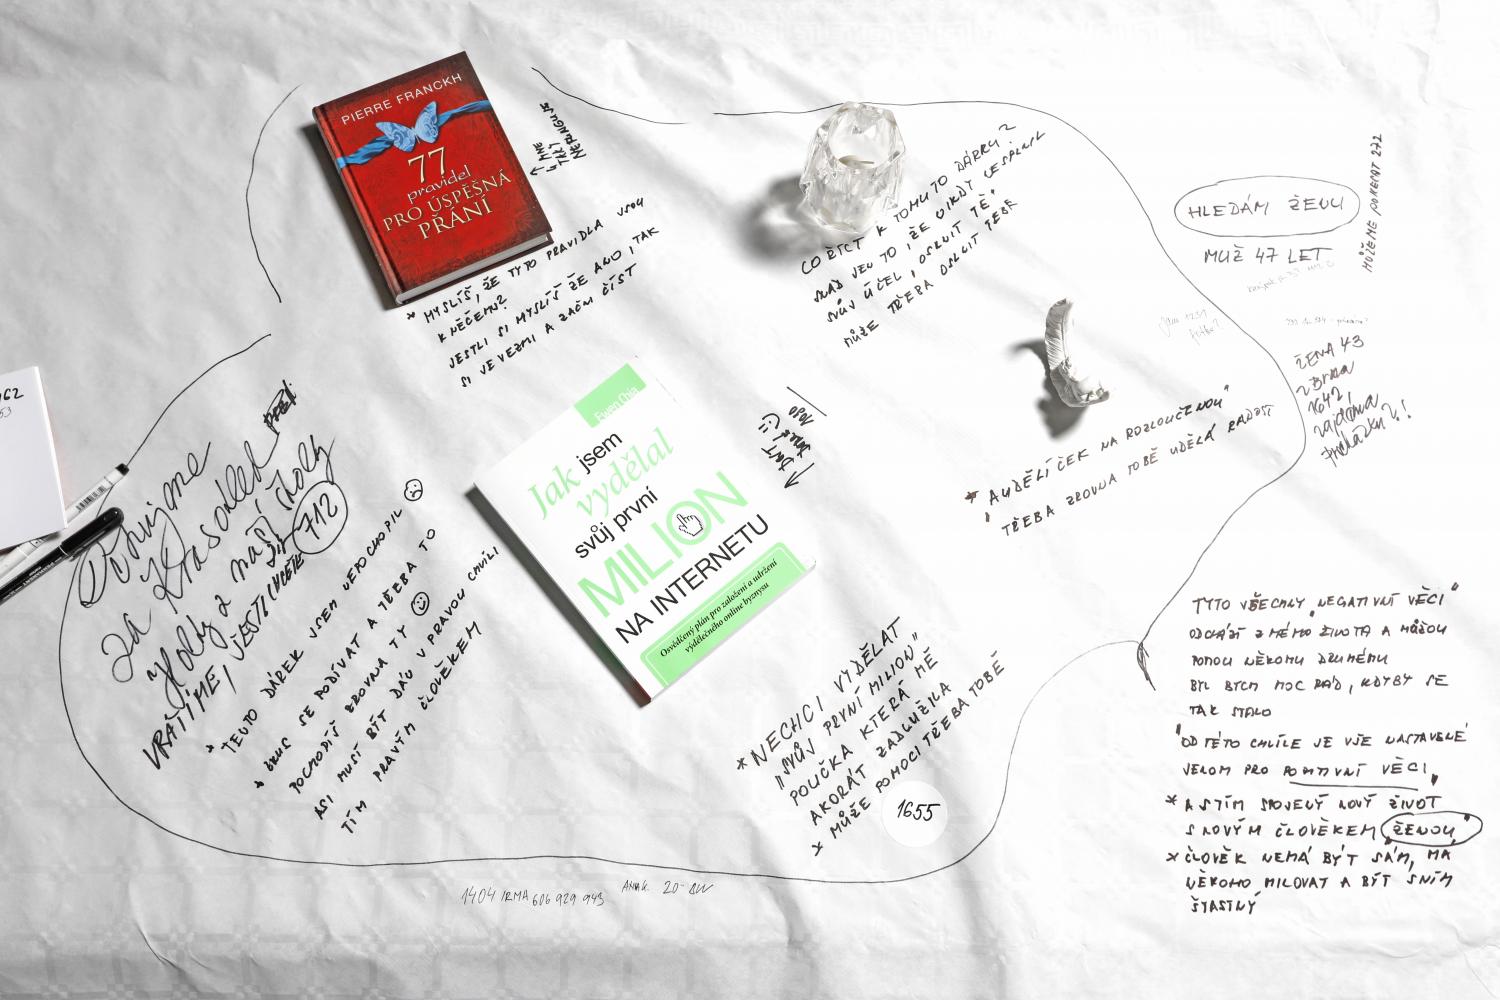 PIERRE FRANCKH
77
pravidel
PRO ÚSPĚŠNÁ
PŘÁNÍ
↑ MNE
TAKY
NEFUNGUJE
* MYSLÍŠ, ŽE TYTO PRAVIDLA JSOU
K NĚČEMU?
JESTLI SI MYSLÍŠ ŽE ANO, TAK
SI JE VEZMI A ZAČNI ČÍST
CO ŘÍCT K TOMUTO DÁRKU?
SNAD JEN TO, ŽE NIKDY NESPLNIL
SVŮJ ÚČEL, OSLNIT TĚ"
MŮŽE TŘEBA OSLNIT TEBE
HLEDÁM ŽENU
MUŽ 47 LET
MŮŽEME POKECAT 272
ŽENA 43
z Brna
1642,
zajdeme
Procházku?!
* ANDĚLÍČEK NA ROZLOUČENOU"
TŘEBA ZROVNA TOBĚ UDĚLÁ RADOST
162
53
Děkujeme
za krasohled
školy z naší školy
712
VRÁTÍME, JESTLI CHCETE
* TENTO DÁREK JSEM NEPOCHOPIL ☹
* ZKUS SE PODÍVAT A TŘEBA TO
POCHOPÍŠ ZROVNA TY ☺
ASI MUSÍ BÝT DÁN V PRAVOU CHVÍLI
TÍM PRAVÝM ČLOVĚKEM
Ewen Chia
Jak jsem
vydělal
svůj první
MILION
NA INTERNETU
Osvědčený plán pro založení a udržení
výdělečného online byznysu
* NECHCI VYDĚLAT
"SVŮJ PRVNÍ MILION"
POUČKA KTERÁ MĚ
AKORÁT ZADLUŽILA
* MŮŽE POMOCI TŘEBA TOBĚ
1655
1404 IRMA 606 929 943
TYTO VŠECHNY „NEGATIVNÍ VĚCI"
ODCHÁZÍ Z MÉHO ŽIVOTA A MŮŽOU
POMOU NĚKOMU DRUHÉMU
BYL BYCH MOC RÁD, KDYBY SE
TAK STALO
"OD TÉTO CHVÍLE JE VŠE NASTAVENÉ
JENOM PRO POZITIVNÍ VĚCI"
* A S TÍM SPOJENÝ NOVÝ ŽIVOT
S NOVÝM ČLOVĚKEM „ŽENOU"
* ČLOVĚK NEMÁ BÝT SÁM, MÁ
NĚKOHO MILOVAT A BÝT S NÍM
ŠŤASTNÝ